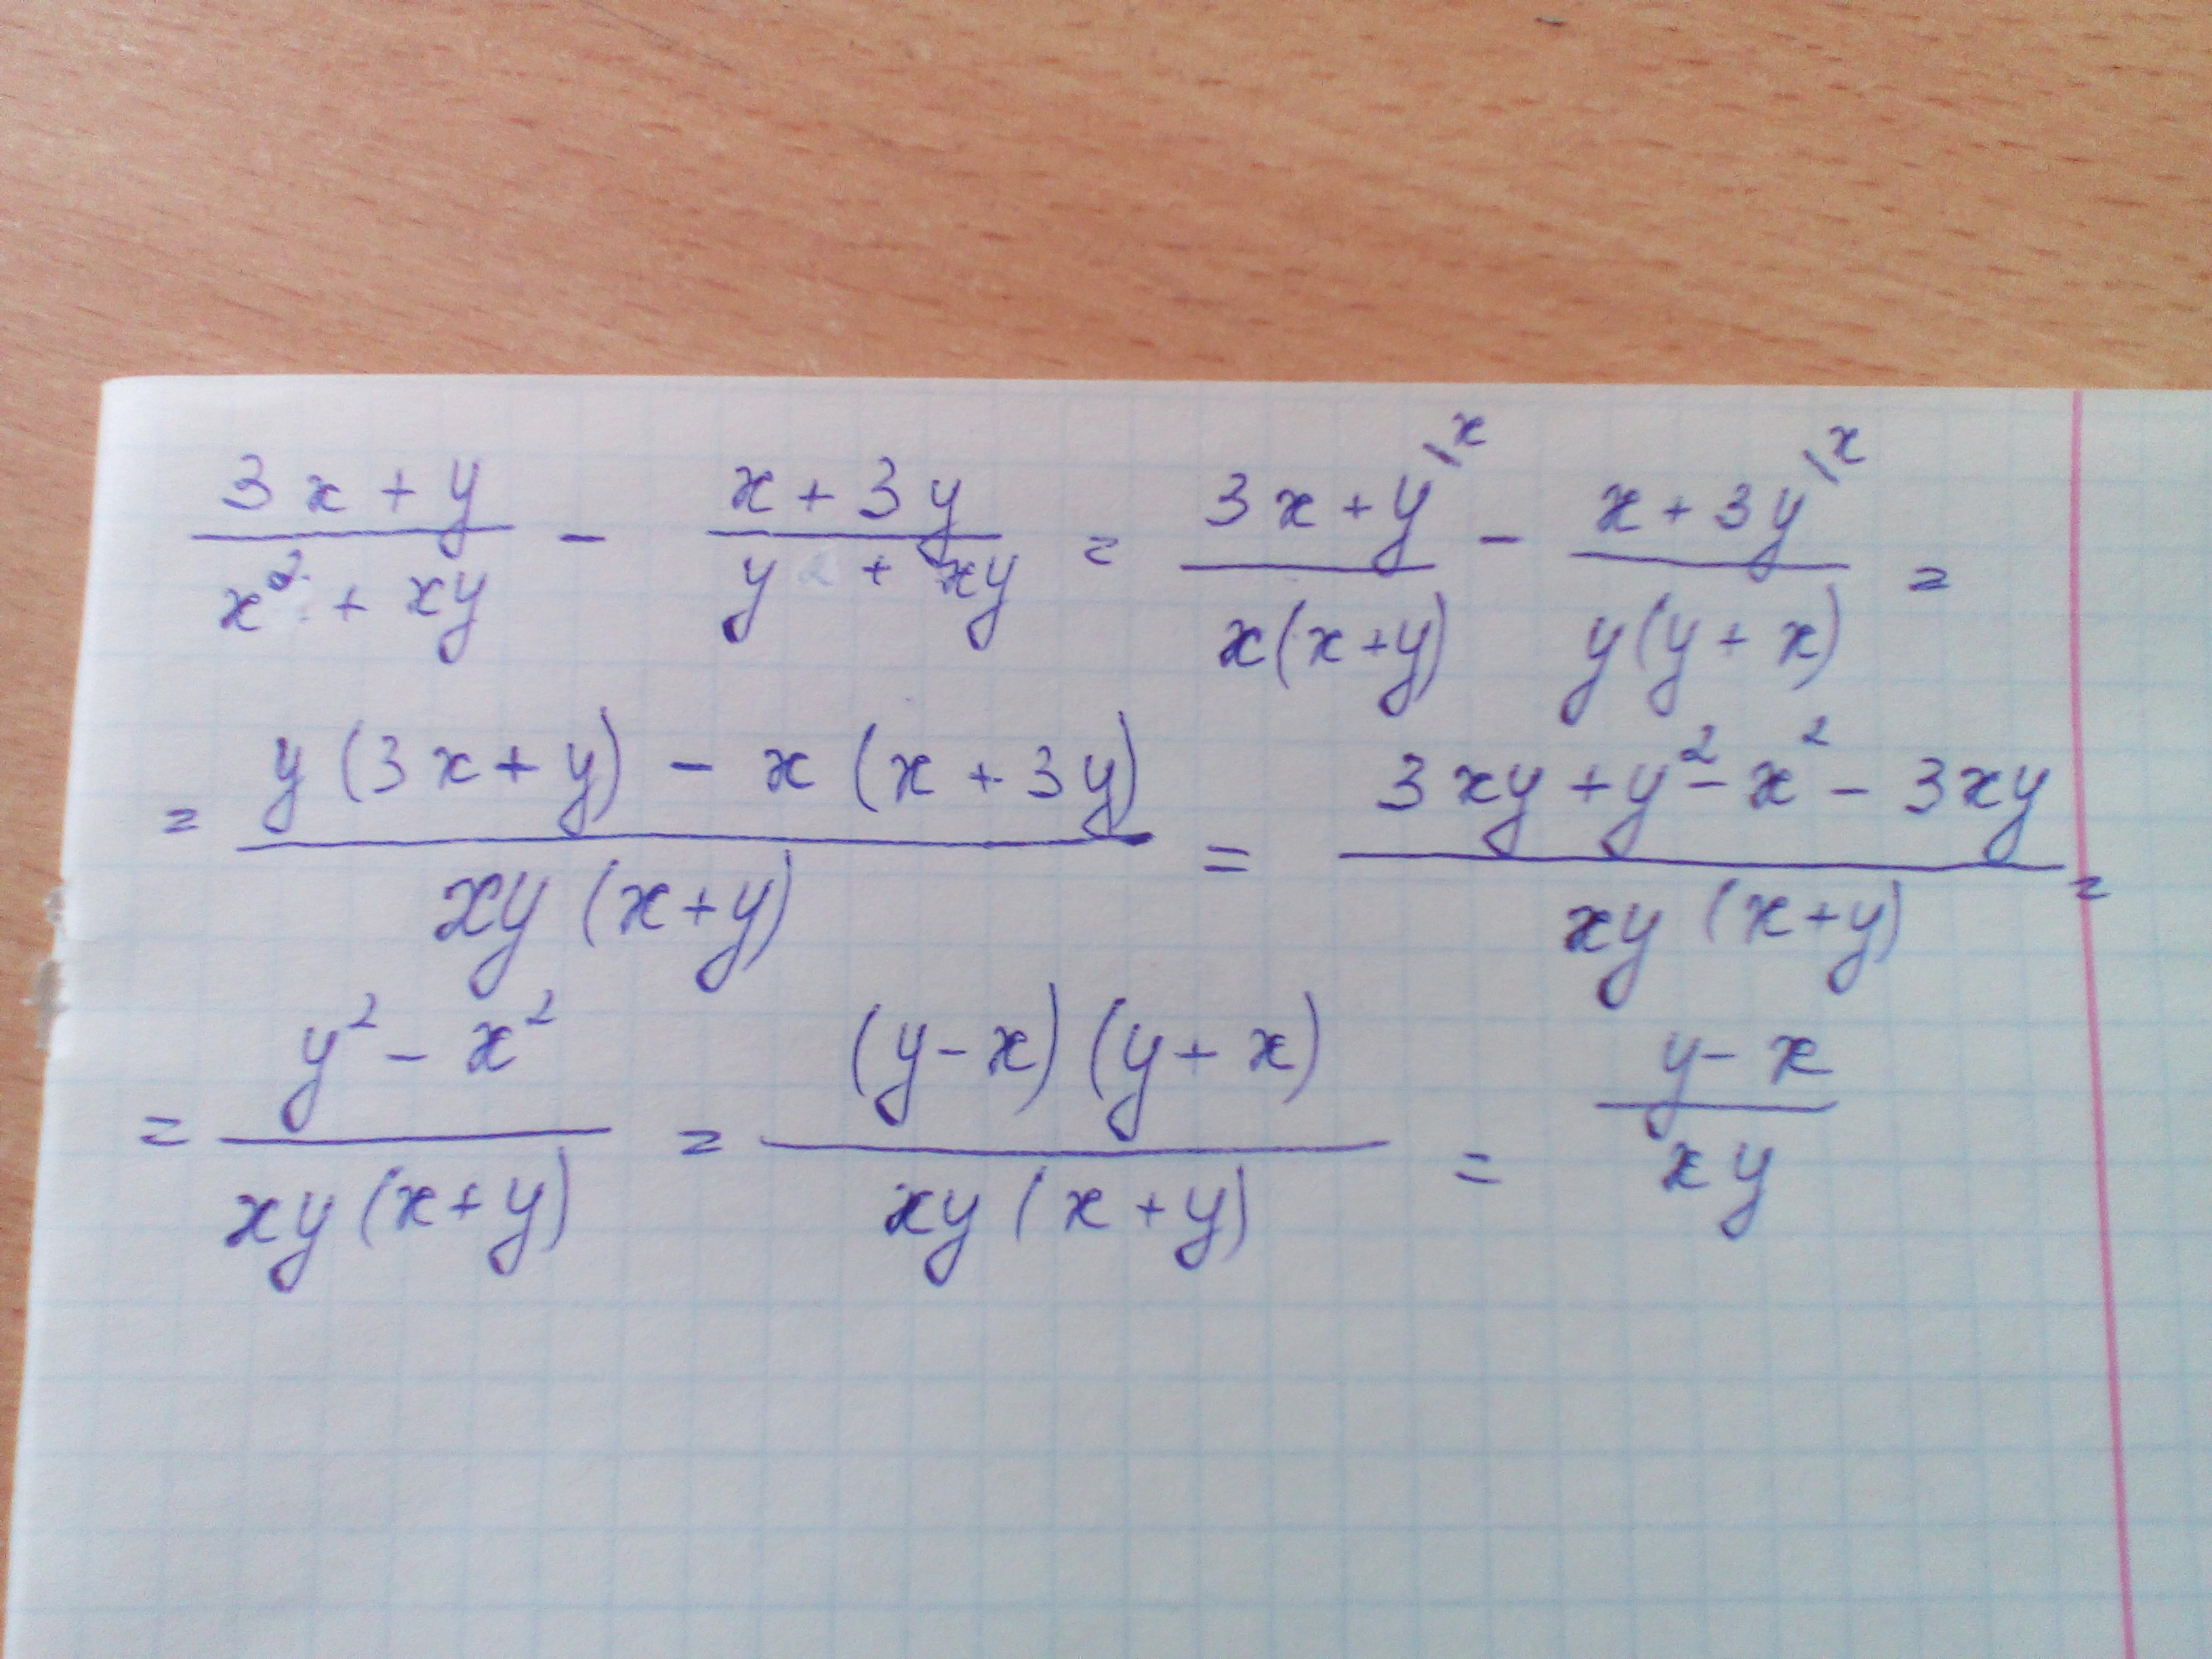 (3x + y)/(x² + xy) - (x + 3y)/(y² + xy) = (3x + y\x)/(x(x+y)) - (x + 3y\x)/(y(y + x)) =
= (y(3x + y) - x(x + 3y))/(xy(x+y)) = (3xy + y² - x² - 3xy)/(xy(x+y)) =
= (y² - x²)/(xy(x+y)) = ((y-x)(y+x))/(xy(x+y)) = (y-x)/(xy)